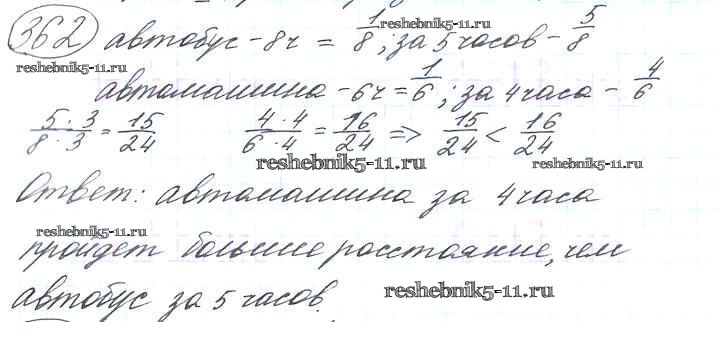 362 автобус - 8ч = 1/8; за 5 часов - 5/8
reshebnik5-11.ru
reshebnik5-11.ru
автомашина - 6ч = 1/6; за 4 часа - 4/6
5·3/8·3 = 15/24   4·4/6·4 = 16/24 => 15/24 < 16/24
reshebnik5-11.ru
reshebnik5-11.ru
Ответ: автомашина за 4 часа
reshebnik5-11.ru
пройдет большие расстояние, чем
автобус за 5 часов.
reshebnik5-11.ru